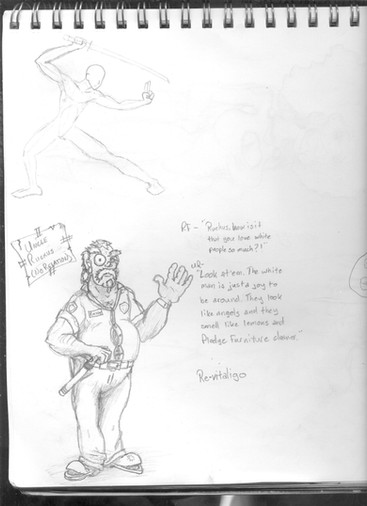 Uncle
Ruckus
(No Relation)
RF - "Ruckus, how is it
that you love white
people so much?!"
UR-
"Look at 'em. The white
man is just a joy to
be around. They look
like angels and they
smell like lemons and
Pledge Furniture cleaner."
Re-vitaligo